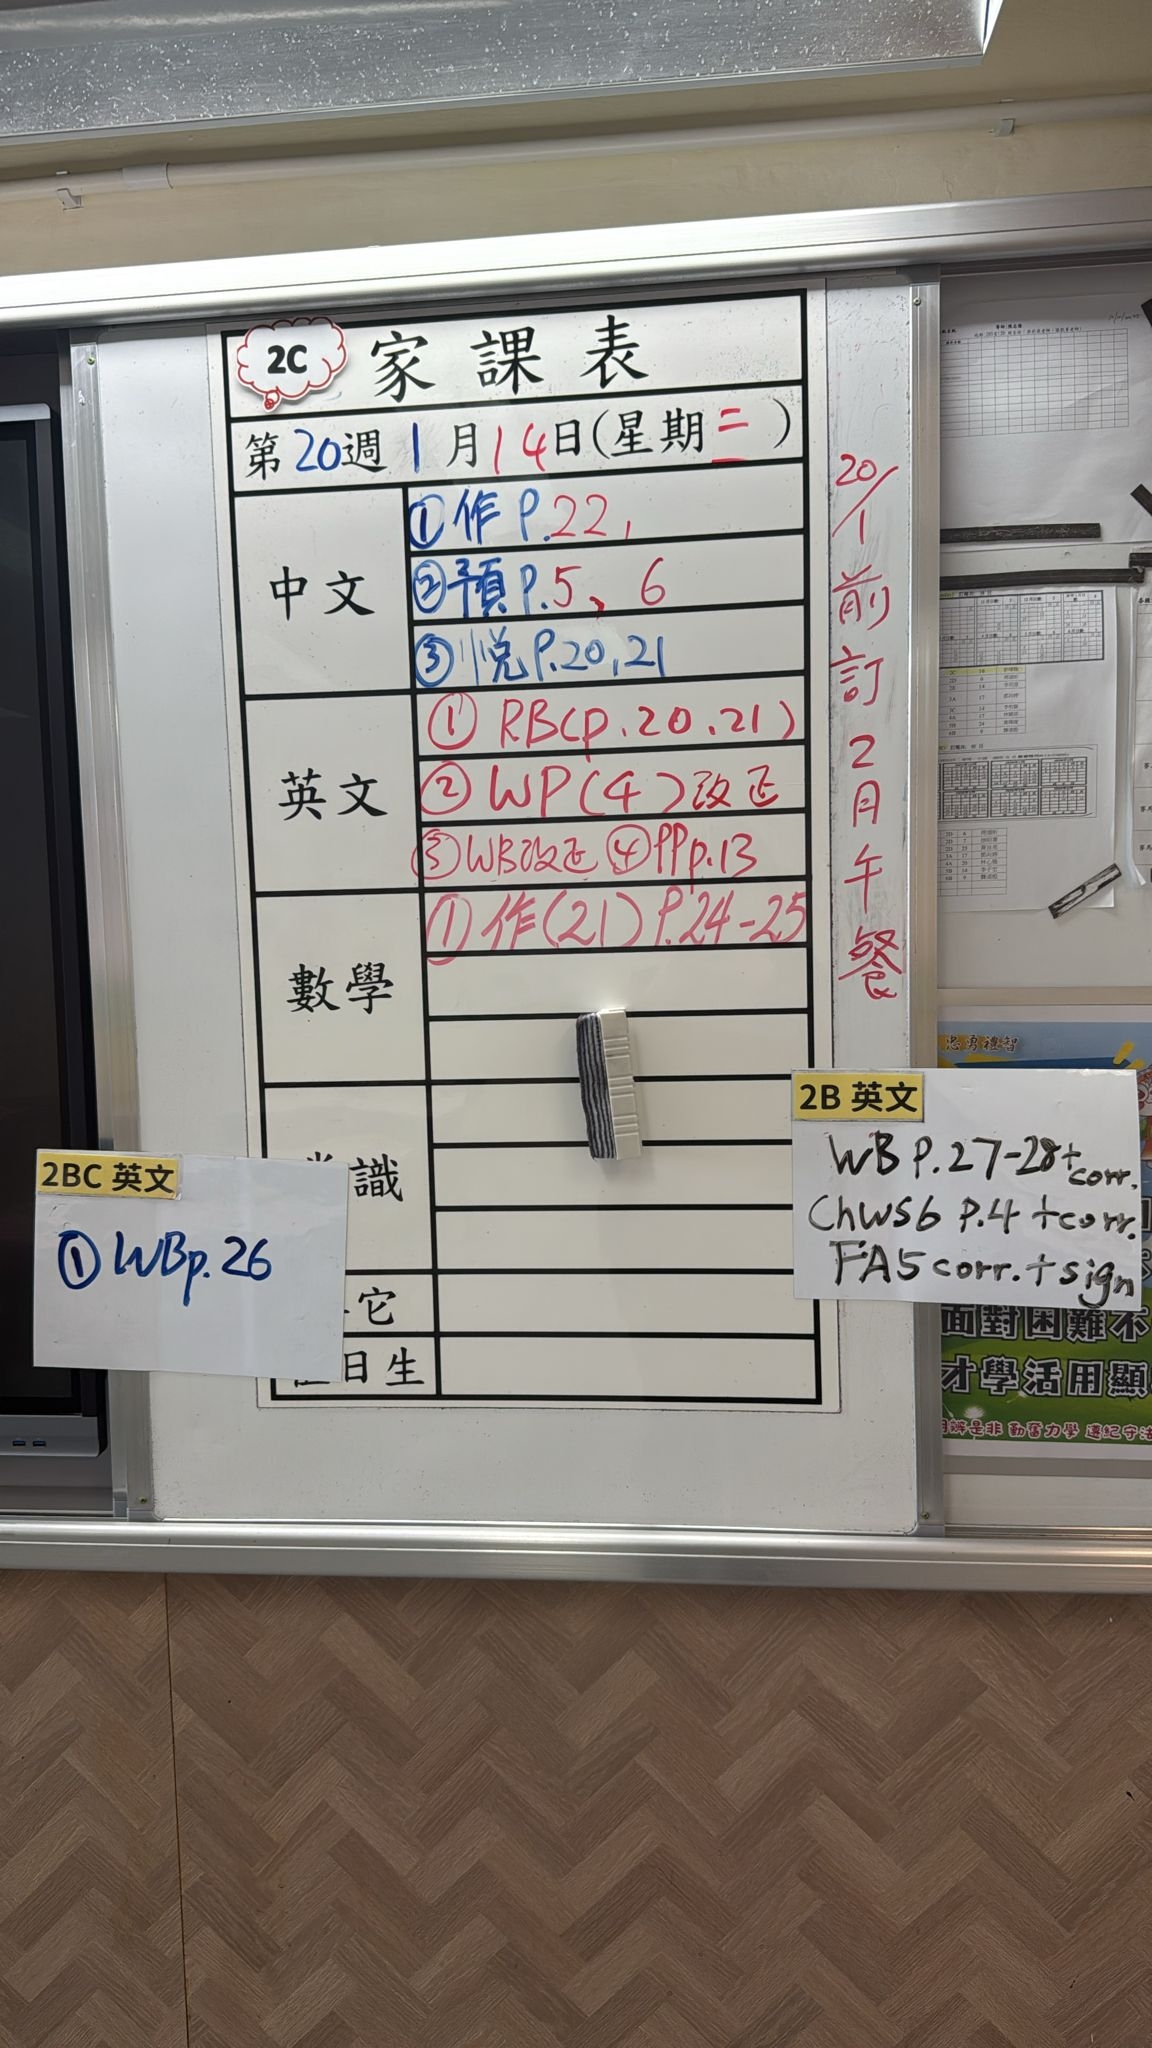 2C 家課表
第20週1月14日(星期二)
中文
①作P.22,
②預P.5、6
③悅P.20,21
英文
①RB(p.20.21)
②WP(4)改正
③WB改正 ④PPp.13
數學
①作(21)P.24-25
識
它
日生
20/1前訂2月午餐
2BC 英文
①WBp.26
2B 英文
WB P.27-28+corr.
ChWS6 P.4+corr.
FA5 corr.+sign
忠勇禮智
面對困難不
才學活用顯
是非 勤奮力學 遵紀守法